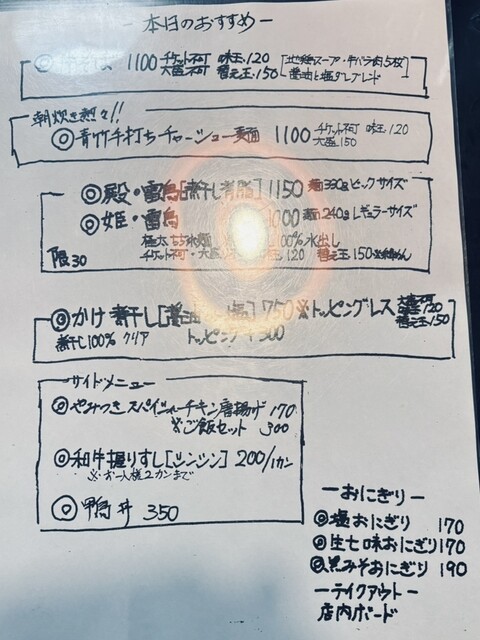 －本日のおすすめ－
◎ 1100 チケット不可 味玉120
大盛不可 替え玉150
地鶏スープ・牛バラ肉5枚
醤油と塩ダレブレンド
朝炊き熱々!!
◎青竹手打ちチャーシュー麺 1100 チケット不可 味玉120
大盛150
◎殿・雷鳥[煮干し背脂] 1150 麺390g ビックサイズ
◎姫・雷鳥 1000 麺240g レギュラーサイズ
極太ちぢれ麺 100% 水出し
チケット不可・大盛 120 替え玉150
限30
◎かけ煮干し[醤油 塩] 750 ※トッピングレス 大盛不可
味玉120
替え玉150
煮干し100% クリア トッピング+300
サイドメニュー
◎やみつきスパイシーチキン唐揚げ 170
※ご飯セット 300
◎和牛握りすし[シンシン] 200/1カン
※お一人様2カンまで
◎鴨丼 350
－おにぎり－
◎塩おにぎり 170
◎生七味おにぎり 170
◎黒みそおにぎり 190
－テイクアウト－
店内ボード